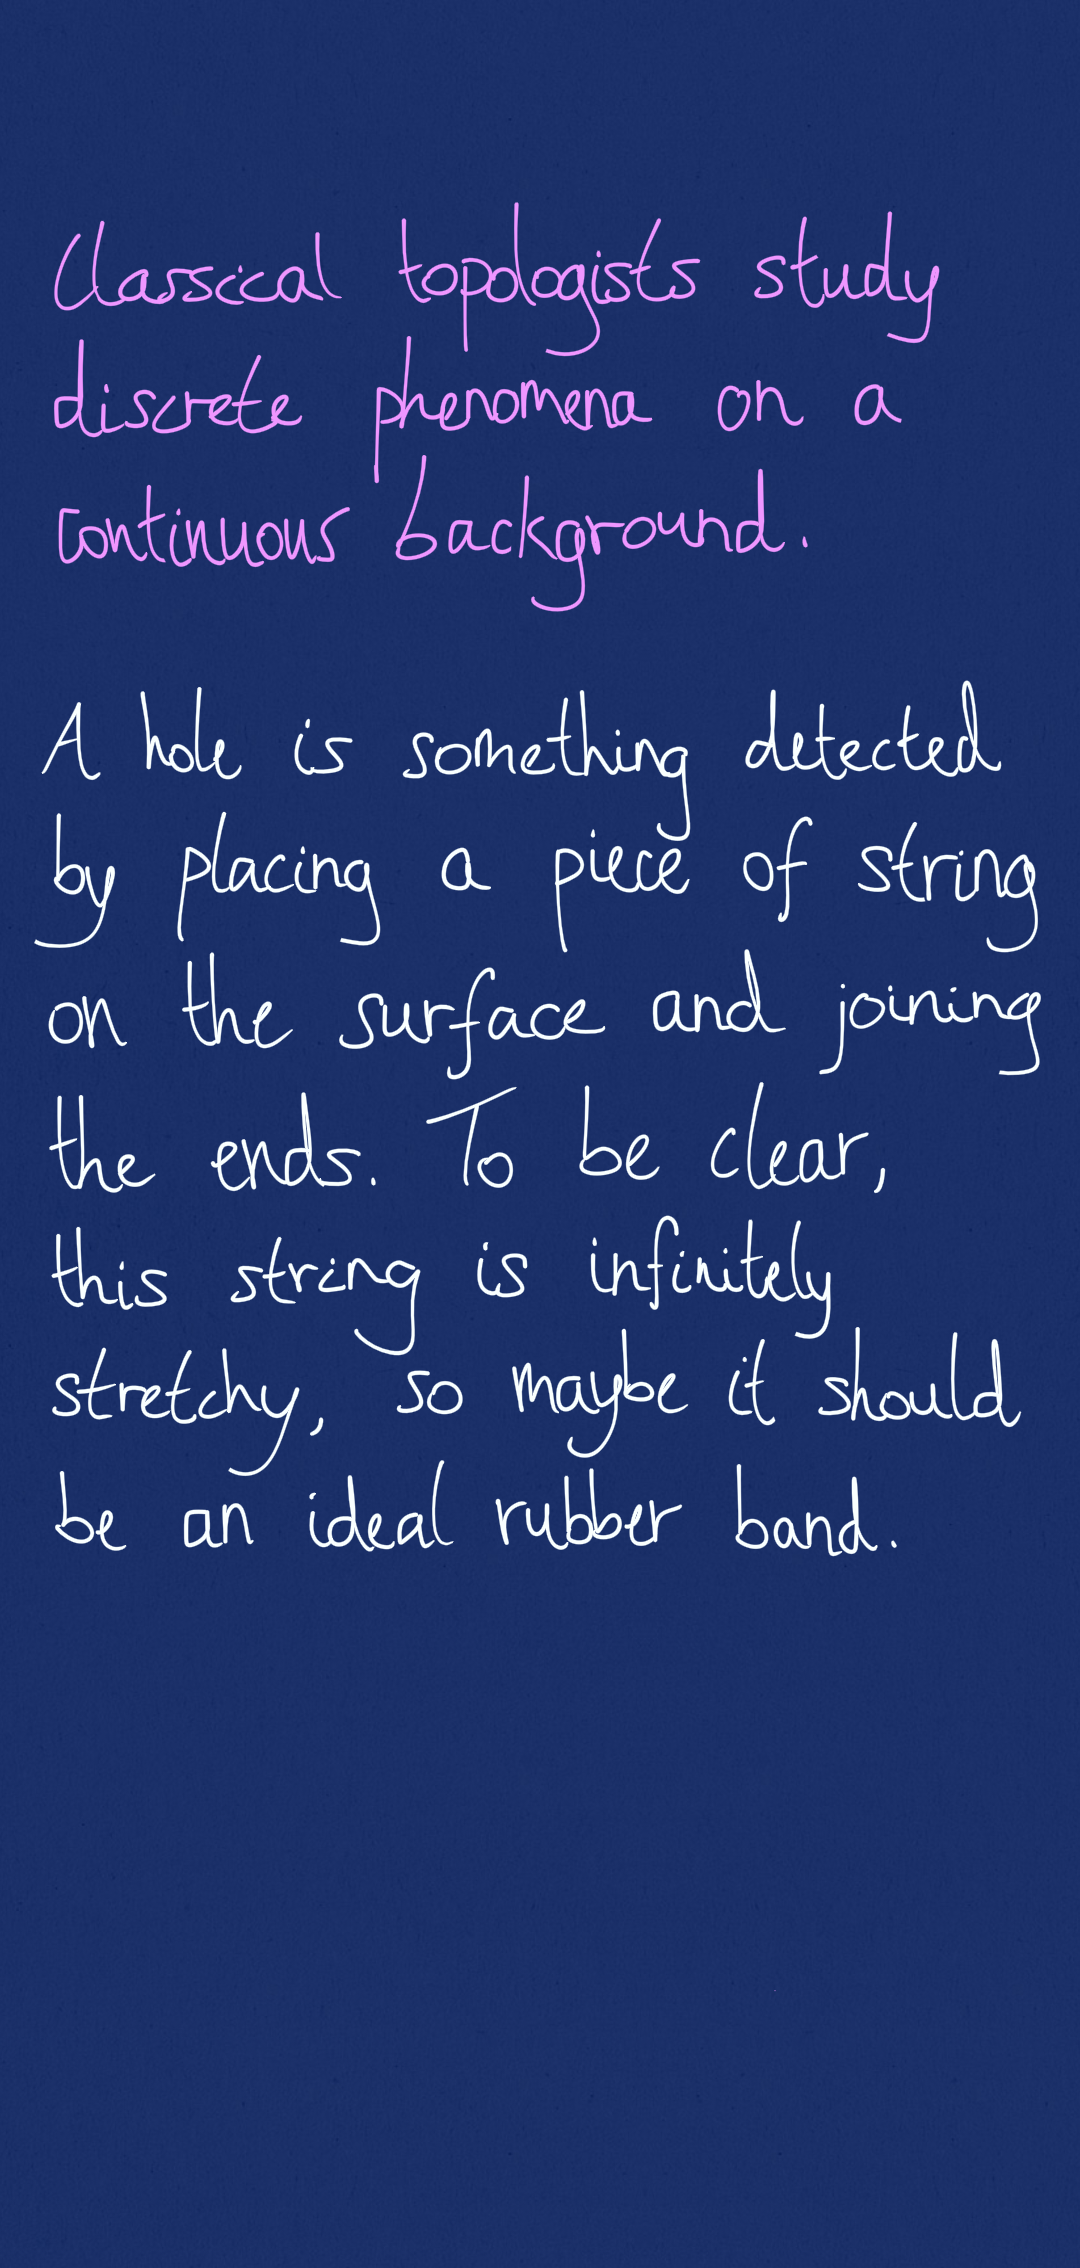 Classical topologists study
discrete phenomena on a
continuous background.
A hole is something detected
by placing a piece of string
on the surface and joining
the ends. To be clear,
this string is infinitely
stretchy, so maybe it should
be an ideal rubber band.